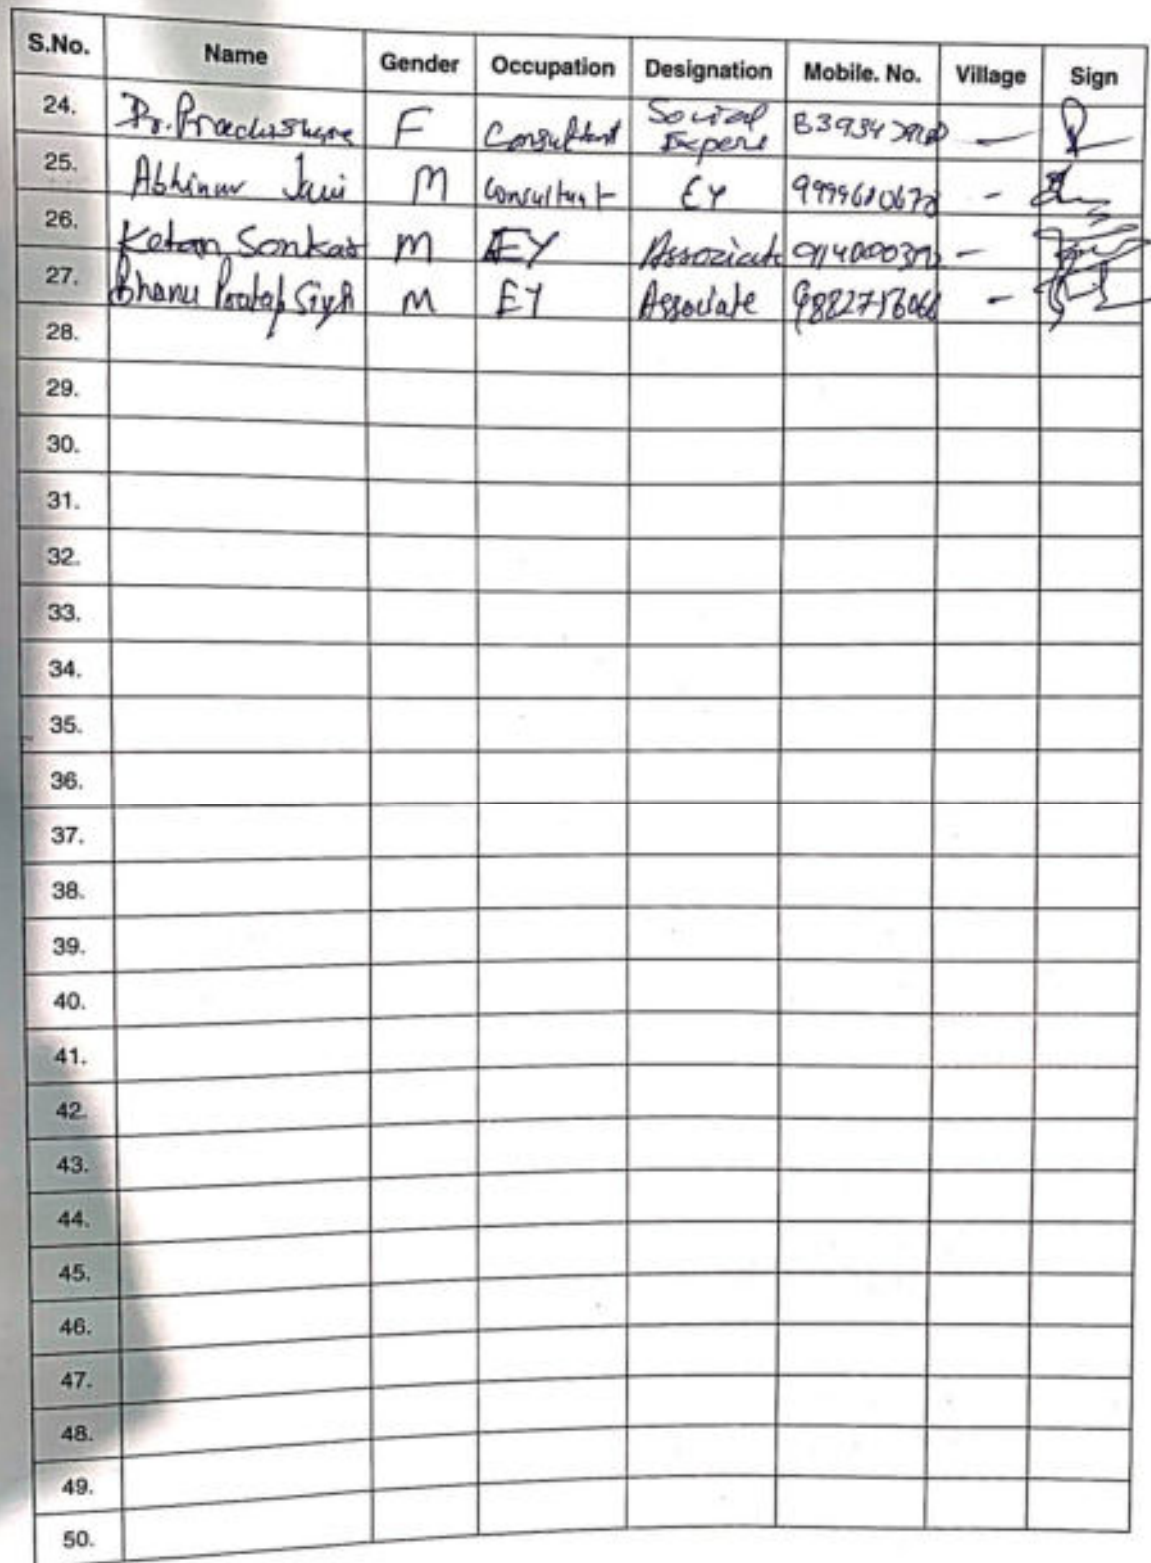 S.No. Name Gender Occupation Designation Mobile. No. Village Sign
24. F Consultant Social Expert —
25. Abhinav Jain M Consultant EY 9999610670 -
26. Ketan Sonkar M EY Associate -
27. Bhanu Pratap Singh M EY Associate -
28.
29.
30.
31.
32.
33.
34.
35.
36.
37.
38.
39.
40.
41.
42.
43.
44.
45.
46.
47.
48.
49.
50.